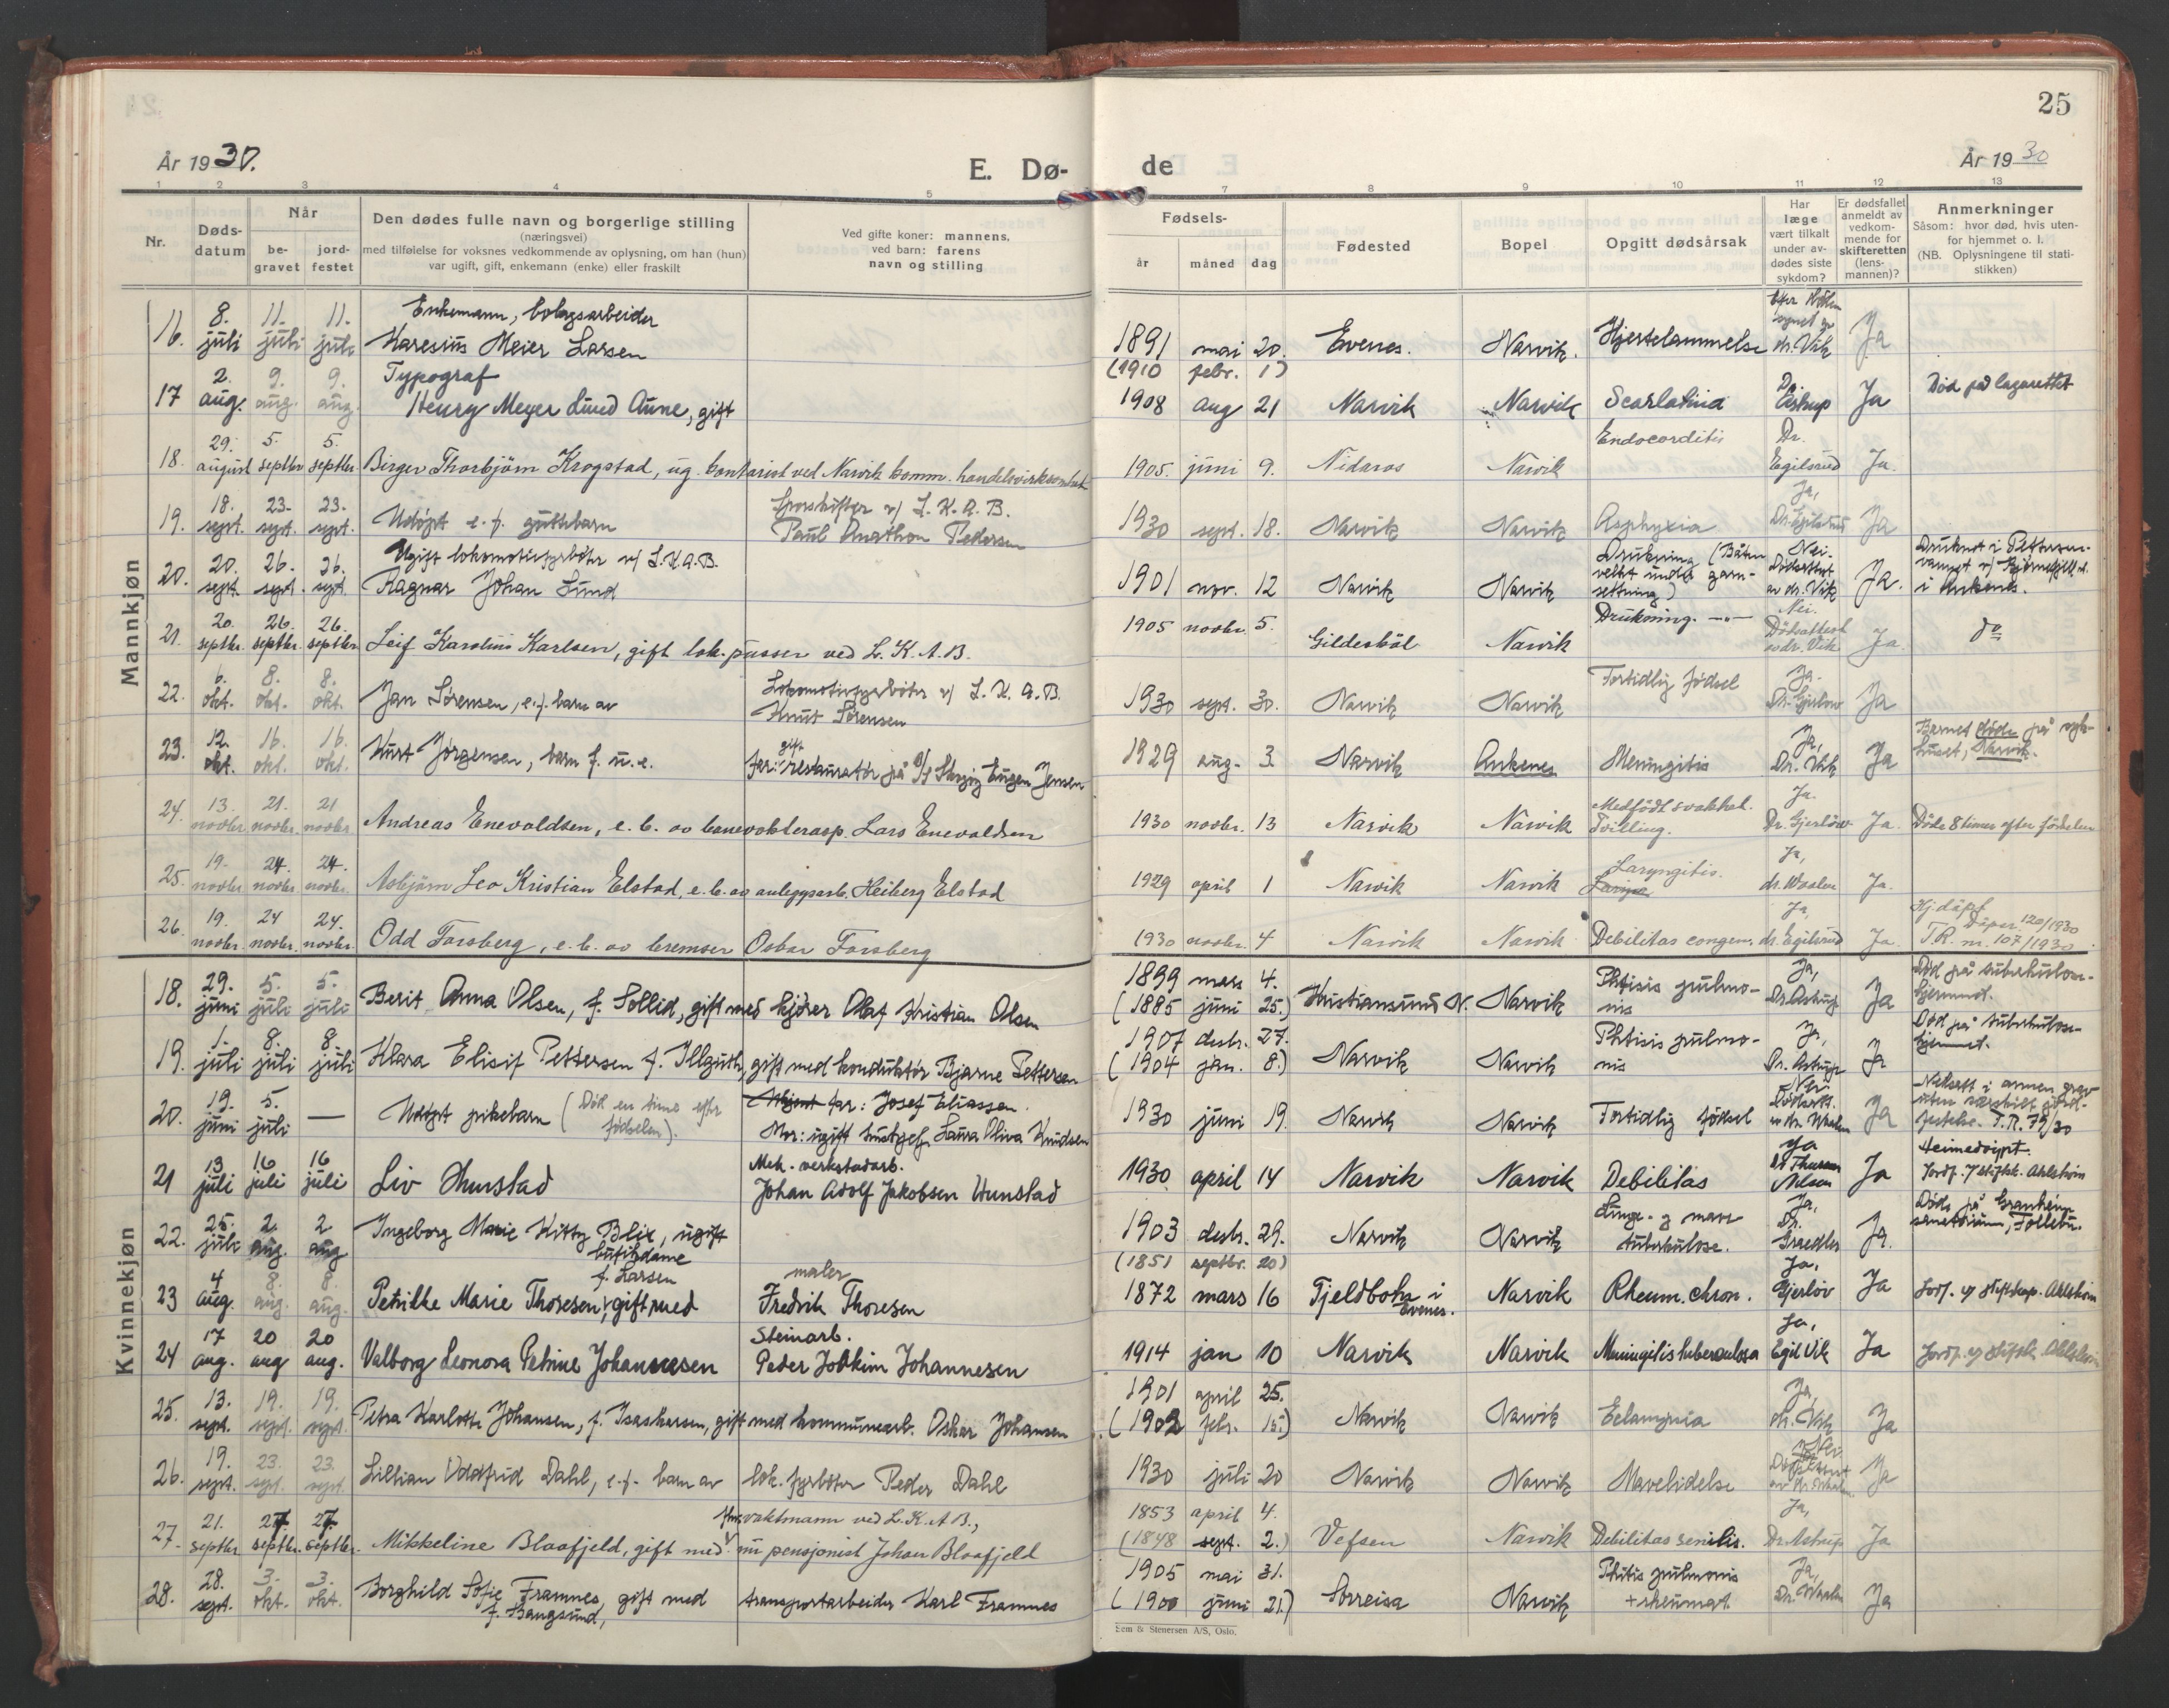 25
År 1930.
E. Dø-
de
År 1930
1 2 3 4 5 7 8 9 10 11 12 13
Nr.
Døds-
datum
Når
be-
gravet
jord-
festet
Den dødes fulle navn og borgerlige stilling
(næringsvei)
med tilføielse for voksnes vedkommende av oplysning, om han (hun)
var ugift, gift, enkemann (enke) eller fraskilt
Ved gifte koner: mannens,
ved barn: farens
navn og stilling
Fødsels-
år måned dag
Fødested
Bopel
Opgitt dødsårsak
Har
læge
vært tilkalt
under av-
dødes siste
sykdom?
Er dødsfallet
anmeldt av
vedkom-
mende for
skifteretten
(lens-
mannen)?
Anmerkninger
Såsom: hvor død, hvis uten-
for hjemmet o. l.
(NB. Oplysningene til stati-
stikken)
Mannkjøn
16. 8. juli 11. juli 11. juli Enkemann, bolagsarbeider
Karesius Meier Larsen 1891 mai 20. Evenes. Narvik. Hjertelammelse dr. Vik Ja
17 2. aug. 9. aug. 9. aug. Typograf
Henry Meyer Lund Aune, gift (1910 febr. 1) 1908 aug 21 Narvik Narvik Scarlatina Dr. Astrup Ja Død på lazarettet
18. 29. august 5. septbr 5. septbr. Birger Thorbjörn Krogstad, ug. kontorist ved Narvik komm. handelsvirksomhet 1905. juni 9. Nidaros Narvik Endocarditis Dr. Egilsrud Ja.
19. 18. sept. 23. sept. 23. sept. Udøpt e. f. guttebarn Sporskifter v/ L.K.A.B.
Paul Anathon Pedersen 1930 sept. 18. Narvik Narvik Asphyxia Ja, Dr. Egilsrud Ja
20. 20. sept. 26. sept. 26. sept. Ugift lokomotivfyrbøter v/ L.K.A.B.
Ragnar Johan Lund 1901 nov. 12 Narvik Narvik Drukning (Båten
veltet under garn-
setning) Nei. Dødsattest av dr. Vik Ja. i Ankenes.
21. 20. septbr. 26. septbr. 26. septbr Leif Karolius Karlsen, gift lok.pusser ved L.K.A.B. 1905 novbr. 5. Gildeskål Narvik Drukning. —"— Nei. Dödsattest av dr. Vik Ja. do
22. 6. okt. 8. okt. 8. okt. Jan Sørensen, e.f. barn av Lokomotivfyrbøter v/ L.K.A.B.
Knut Sørensen 1930 sept. 30. Narvik Narvik Fortidlig fødsel Ja. Dr. Gjerløw Ja
23. 12. okt. 16. okt. 16. okt. Kurt Jørgensen, barn f. u. e. far: gift restauratør på Eugen Jensen 1929 aug. 3. Narvik Ankenes Meningitis Ja, Dr. Vik Ja Barnet døde på syke-
huset, Narvik.
24. 13. novbr 21. novbr. 21 novbr Andreas Enevaldsen, e. b. av banevokterasp. Lars Enevaldsen 1930 novbr. 13 Narvik Narvik Medfödt svakhet.
Tvilling. Ja. Dr. Gjerlöw Ja. Döde 8 timer efter födselen
25. 19. novbr 24. novbr 24. novbr. Asbjörn Leo Kristian Elstad, e. b. av anleggsarb. Heiberg Elstad 1929 april 1 Narvik Narvik Laryngitis. Ja, dr. Waaler Ja.
26. 19. novbr. 24 novbr. 24. novbr. Odd Forsberg, e. b. av bremser Oskar Forsberg 1930 novbr. 4 Narvik Narvik Debilitas congen. Ja, dr. Egilsrud Ja Hj.döpt
Döpes. 120/1930
T.R. nr. 107/1930
Kvinnekjøn
18. 29. juni 5. juli 5. juli Berit Anna Olsen, f. Sollid, gift med kjører Olaf Kristian Olsen 1899 mars 4. (1885 juni 25.) Kristiansund N. Narvik Phtisis pulmo-
nis Ja, Dr. Astrup Ja Død på tuberkulose-
hjemmet.
19. 1. juli 8. juli 8. juli Klara Elisif Pettersen f. Illguth, gift med konduktør Bjarne Pettersen 1907 desbr. 27. (1904 jan. 8.) Narvik Narvik Phtisis pulmo-
nis Ja, Dr. Astrup Ja Død på tuberkulose-
hjemmet.
20. 19. juni 5. juli — Udøpt pikebarn (Død en time efter
fødselen). far: Josef Eliassen.
Mor: ugift Laura Oliva Knudsen 1930 juni 19. Narvik Narvik Fortidlig fødsel Nei. Ja Nedsatt i annen grav
uten særskilt jord-
festelse. T.R. 79/30
21 13 juli 16 juli 16 juli Liv Hunstad Mek. verkstadarb.
Johan Adolf Jakobsen Hunstad 1930 april 14 Narvik Narvik Debilitas Ja Nilsen Ja Heimedøypt.
Jordf. v/ stiftsk. Ahlstrøm
22. 25. juli 2. aug. 2 aug Ingeborg Marie Kitty Blix, ugift
butikdame 1903 desbr. 29. Narvik Narvik Lunge- og mave
tuberkulose. Ja, Dr. Graedler Ja. Døde på Granheim
sanatorium, Follebu.
23 4 aug. 8. aug. 8. aug. Petrikke Marie Thoresen, f. Larsen gift med maler
Fredrik Thoresen (1851 septbr. 20) 1872 mars 16 Fjeldbotn i
Evenes. Narvik Rheum. chron. Ja, Gjerløv Ja Jordf. v/ stiftskap. Ahlstrøm
24 17 aug. 20 aug 20 aug. Valborg Leonora Petrine Johannesen Steinarb.
Peder Joakim Johannesen 1914 jan 10 Narvik Narvik Meningitis tuberculosa Ja, Egil Vik Ja Jordf. v/ stiftsk. Ahlstrøm
25. 13. sept. 19. sept. 19. sept. Petra Karlotte Johansen, f. Isaskarsen, gift med kommunearb. Oskar Johansen 1901 april 25. (1902 febr. 15.) Narvik Narvik Eclampsia Ja, dr. Vik Ja
26. 19. sept. 23. sept. 23. sept. Lillian Oddfrid Dahl, e.f. barn av lok. fyrbøter Peder Dahl 1930 juli 20 Narvik Narvik Mavelidelse Nei Ja
27. 21. septbr 27. septbr. 27. septbr. Mikkeline Blaafjeld, gift med vaktmann ved L.K.A.B.,
nu pensjonist Johan Blaafjeld 1853 april 4. (1848 sept. 2.) Vefsen Narvik Debilitas senilis. Ja, Dr. Astrup Ja
28. 28. sept. 3. okt. 3. okt. Borghild Sofie Framnes, gift med
f. Bangsund, transportarbeider Karl Framnes 1905 mai 31. (1900 juni 21.) Sørreisa Narvik Phtisis pulmonis
+ rheumat. Ja, Ja
Sem & Stenersen A/S, Oslo.